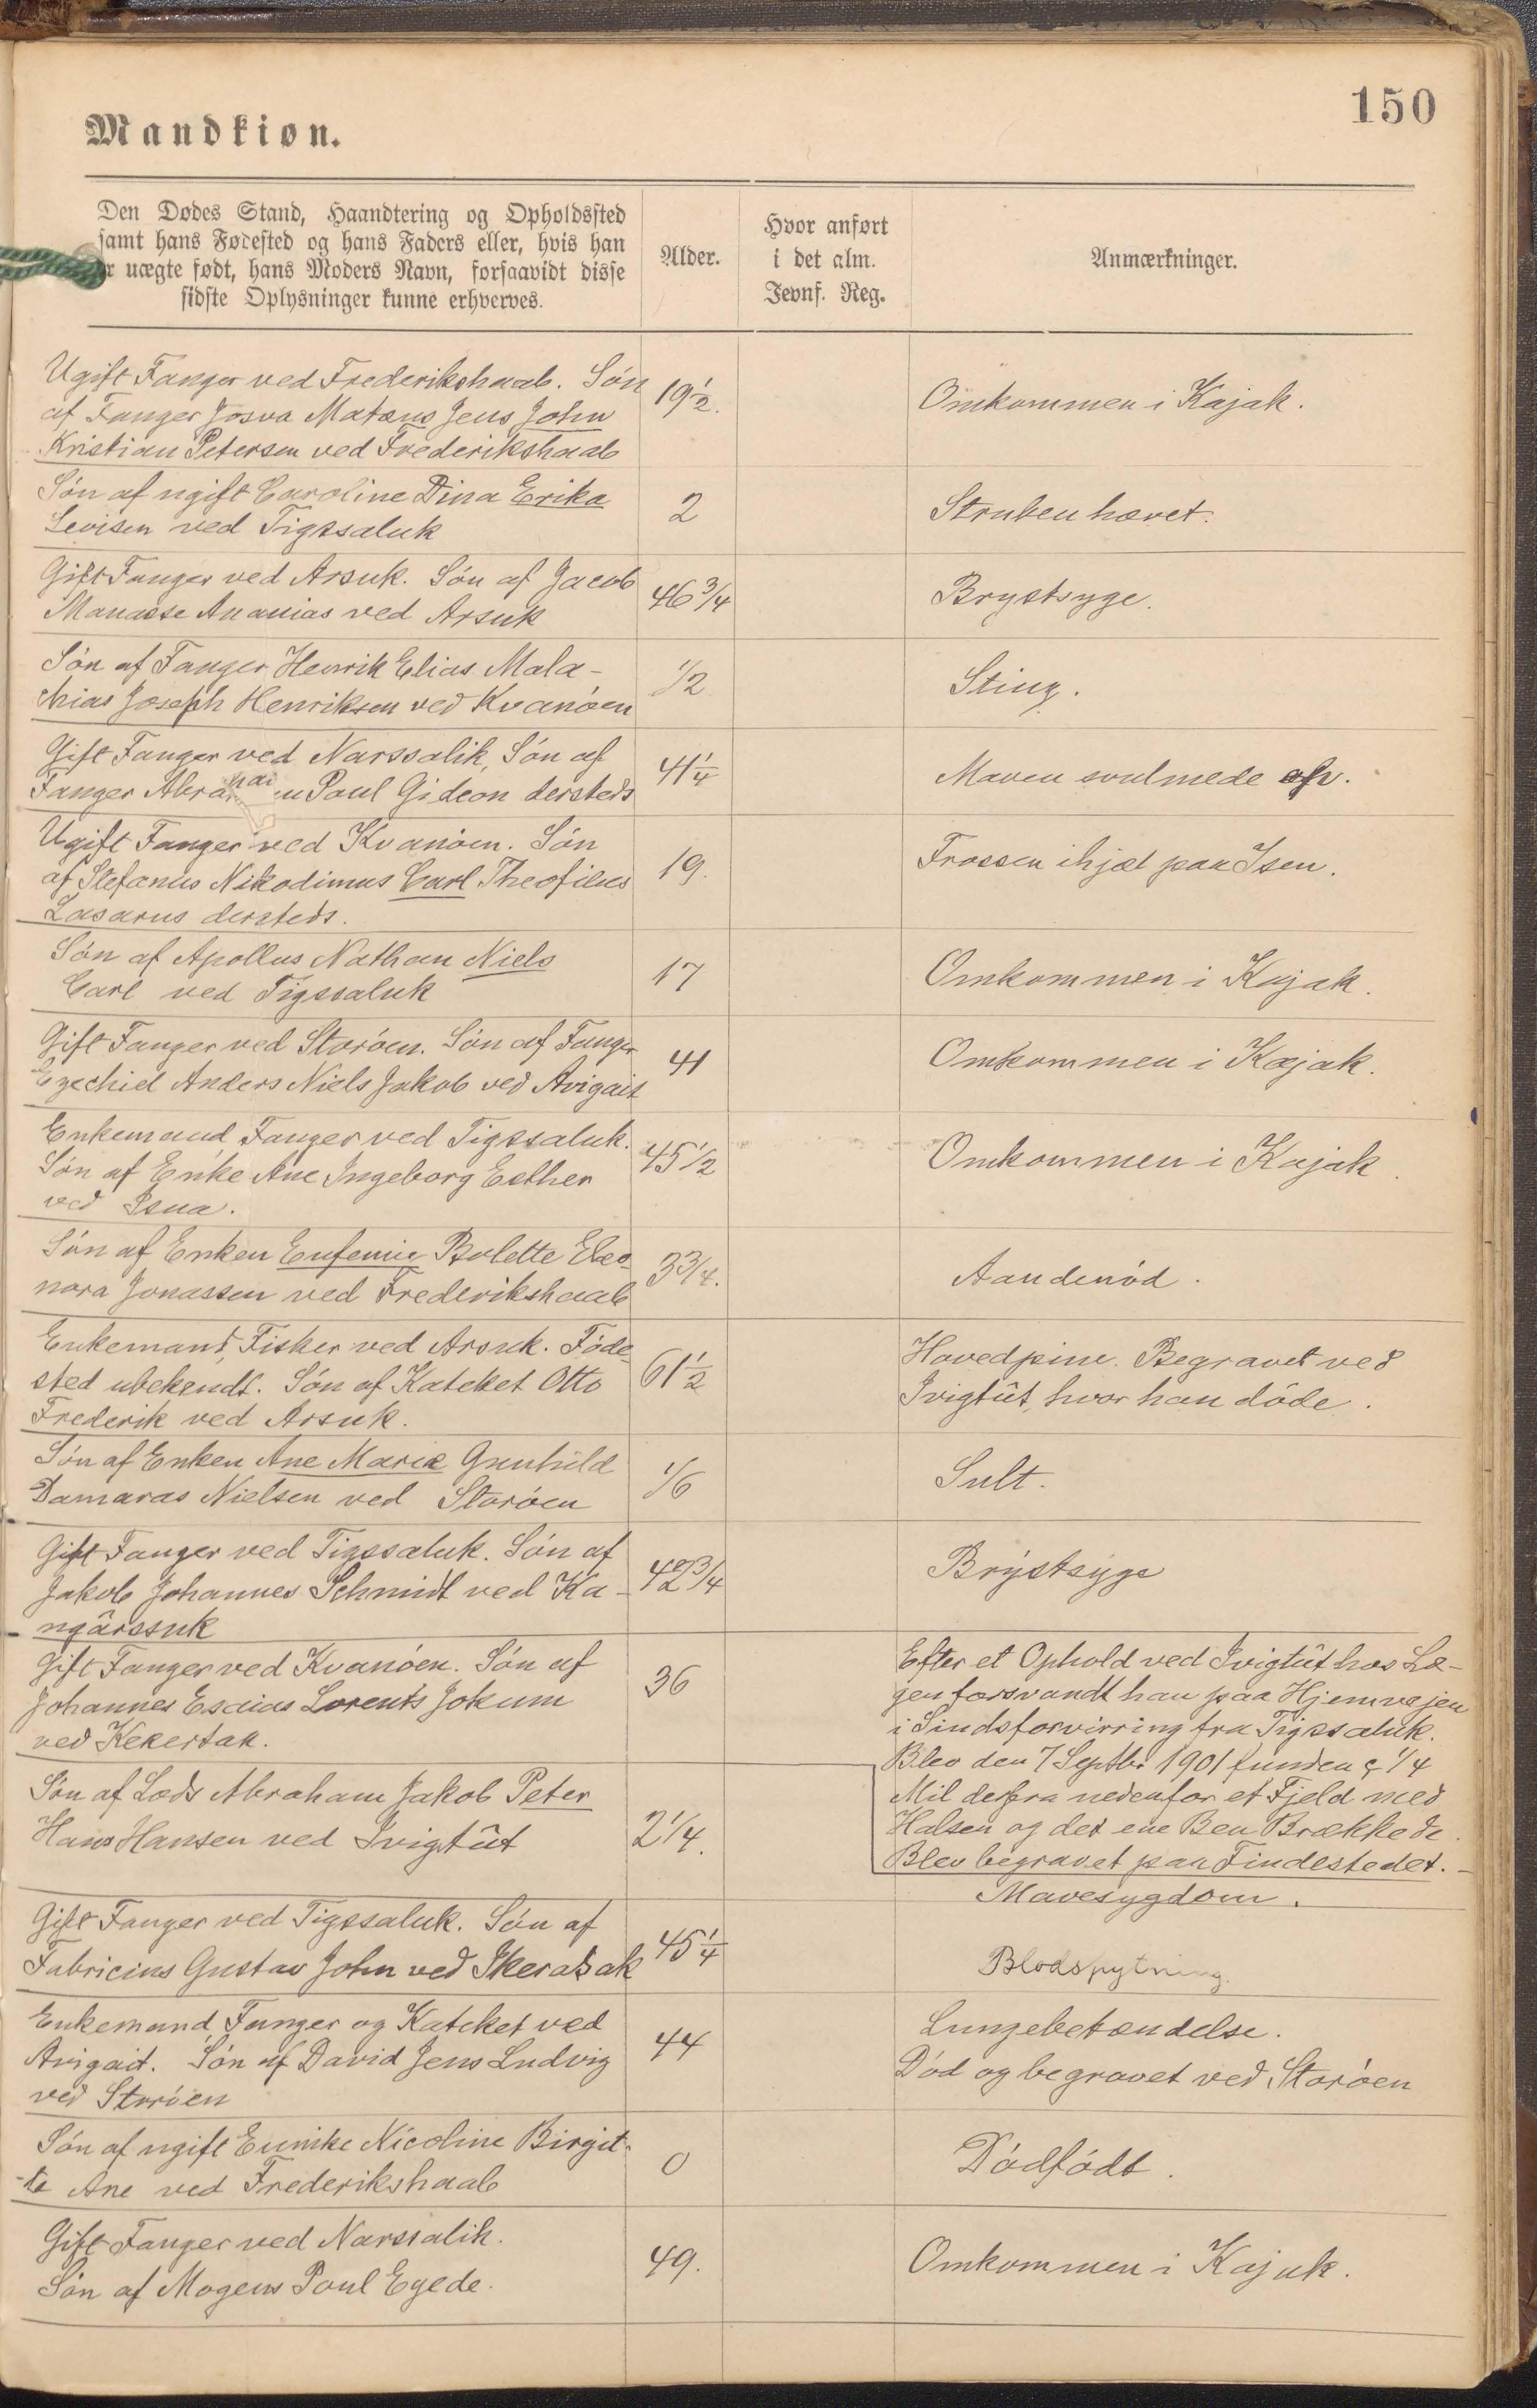 150
Mandkiøn.
Den Dødes Stand, Haandtering og Opholdssted
samt hans Fødested og hans Faders eller, hvis han
er uægte født, hans Moders Navn, forsaavidt disse
sidste Oplysninger kunne erhverves.
Alder.
Hvor anført
i det alm.
Jevnf. Reg.
Anmærkninger.
Ugift Fanger ved Frederikshaab. Søn
af Fanger Josva Matæus Jens John
Kristian Petersen ved Frederikshaab
19 1/2.
Omkommen i Kajak.
Søn af ugift Caroline Dina Erika
Levisen ved Tigssaluk
2
Struben hævet.
Gift Fanger ved Arsuk. Søn af Jacob
Manasse Ananias ved Arsuk
46 3/4
Brystsyge.
Søn af Fanger Henrik Elias Mala-
chias Joseph Henriksen ved Kvanøen
1/2
Sting.
Gift Fanger ved Narssalik, Søn af
Fanger Abraham Poul Gideon dersteds
41 1/4
Maven svulmede op.
Ugift Fanger ved Kvanøen. Søn
af Stefanus Nikodimus Carl Theofilus
Lasarus dersteds.
19.
Frossen ihjæl paa Isen.
Søn af Apollus Nathan Niels
Carl ved Tigssaluk
17
Omkommen i Kajak.
Gift Fanger ved Storøen. Søn af Fanger
Ezechiel Anders Niels Jakob ved Avigait
41
Omkommen i Kajak.
Enkemand, Fanger ved Tigssaluk.
Søn af Enke Ane Ingeborg Esther
ved Isua.
45 1/2
Omkommen i Kajak.
Søn af Enken Eufemia Bolette Eleo-
nora Jonassen ved Frederikshaab
3 3/4.
Aandenød.
Enkemand, Fisker ved Arsuk. Føde-
sted ubekendt. Søn af Kateket Otto
Frederik ved Arsuk.
61 1/2
Hovedpine. Begravet ved
Ivigtût, hvor han døde.
Søn af Enken Ane Maria Gunhild
Damaras Nielsen ved Storøen
1/6
Sult.
Gift Fanger ved Tigssaluk. Søn af
Jakob Johannes Schmidt ved Ka-
ngârssuk
42 3/4
Brystsyge
Gift Fanger ved Kvanøen. Søn af
Johannes Esaias Lorents Jokum
ved Kekertak.
36
Efter et Ophold ved Ivigtût hos Læ-
gen forsvandt han paa Hjemvejen
i Sindsforvirring fra Tigssaluk.
Blev den 7 Septbr 1901 funden c 1/4
Mil derfra nedenfor et Fjeld med
Halsen og det ene Ben Brækkede.
Blev begravet paa Findestedet.
Søn af Lods Abraham Jakob Peter
Hans Hansen ved Ivigtût
2 1/4.
Mavesygdom.
Gift Fanger ved Tigssaluk. Søn af
Fabricius Gustav John ved Ikerasak
45 1/4
Blodspytning.
Enkemand, Fanger og Kateket ved
Avigait. Søn af David Jens Ludvig
ved Storøen
44
Lungebetændelse.
Død og begravet ved Storøen
Søn af ugift Eunike Nicoline Birgit-
-te Ane ved Frederikshaab
0
Dødfødt.
Gift Fanger ved Narssalik.
Søn af Mogens Poul Egede.
49.
Omkommen i Kajak.